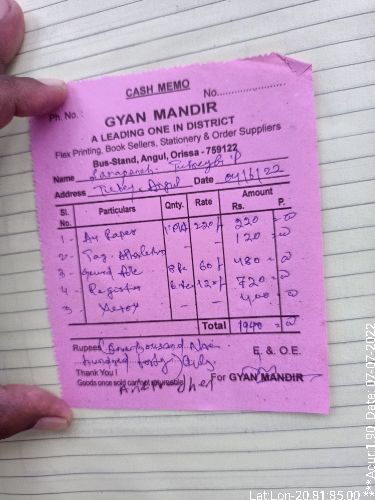 CASH MEMO
Ph No. : No.
GYAN MANDIR
A LEADING ONE IN DISTRICT
Flex Printing, Book Sellers, Stationery & Order Suppliers
Bus-Stand, Angul, Orissa - 759122
Name Sarapanch
Address Angul Date
Sl. No. Particulars Qnty. Rate Amount Rs. P.
1 - A4 Paper 220/- 220
2 - Tag 120
3 - 60/- 480
4 - Register 120/- 720
5 - Xerox - - 400
Total 1940
Rupees One thousand Nine
hundred forty only E. & O.E.
Thank You !
Goods once sold can not returnable For GYAN MANDIR
Lat Lon-20.81:85.00
***Acur:1.90 Date:07-07-2022